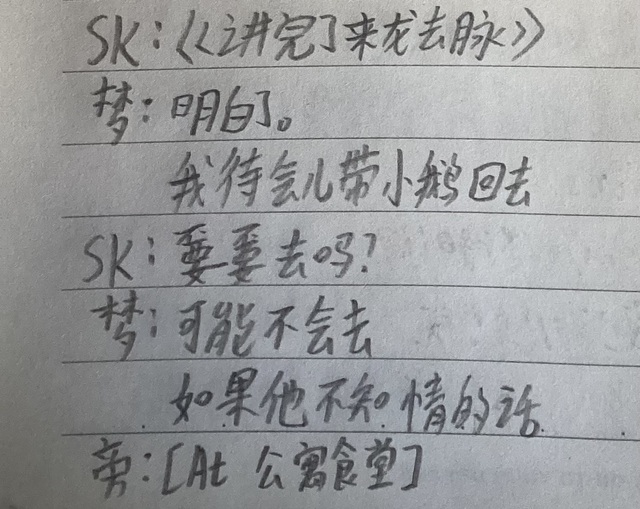 SK:《讲完了来龙去脉》
梦:明白了。
我待会儿带小鹅回去
SK:要要去吗?
梦:可能不会去
如果他不知情的话
旁:[At 公寓食堂]